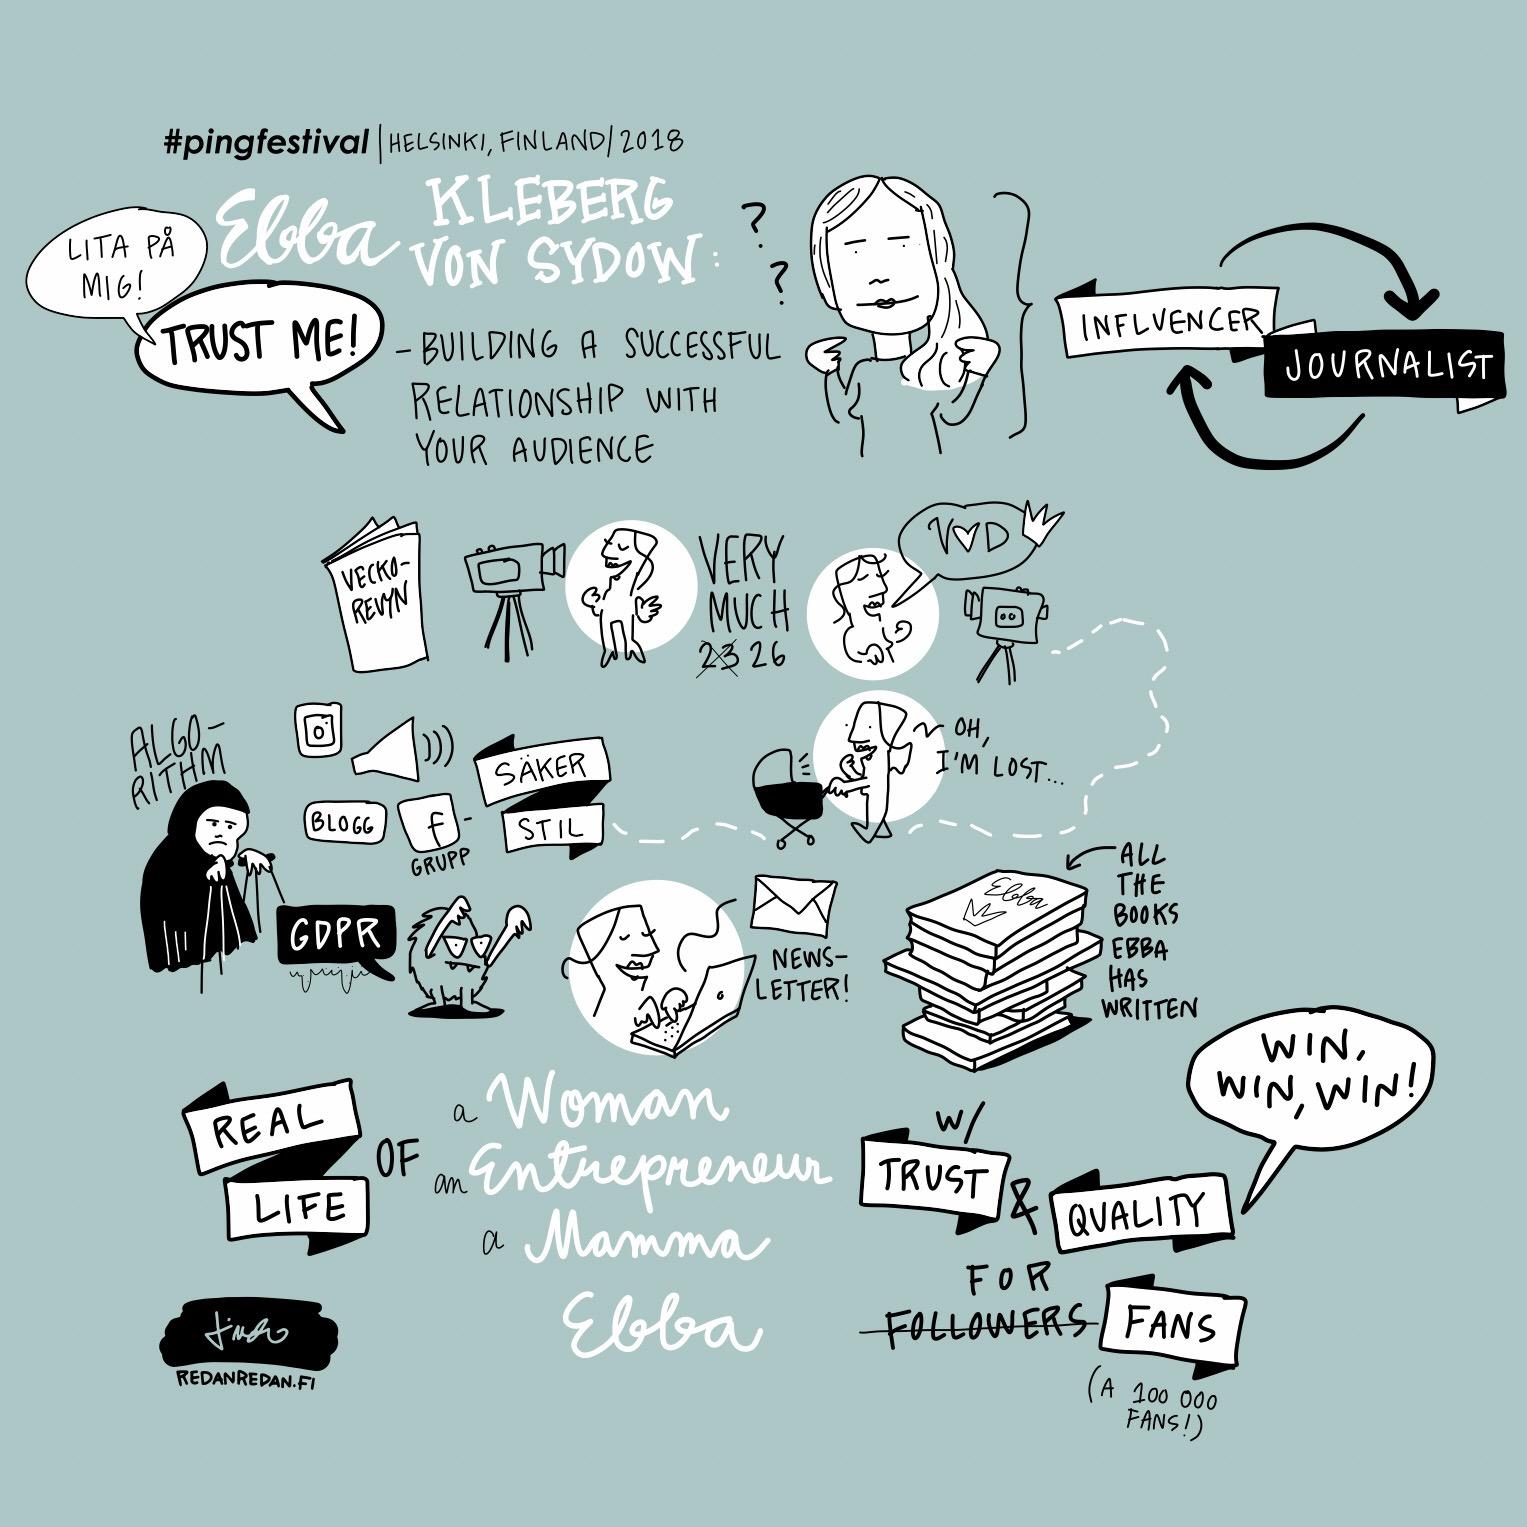 #pingfestival | HELSINKI, FINLAND / 2018
LITA PÅ
MIG!
Ebba KLEBERG
VON SYDOW:
TRUST ME!
- BUILDING A SUCCESSFUL
RELATIONSHIP WITH
YOUR AUDIENCE
? ?
INFLUENCER
JOURNALIST
VECKO-
REVYN
VERY
MUCH
23 26
V♥D
ALGO-
RITHM
BLOGG
f -
GRUPP
SÄKER
STIL
OH,
I'M LOST...
GDPR
NEWS-
LETTER!
Ebba
ALL
THE
BOOKS
EBBA
HAS
WRITTEN
REAL
LIFE
OF
a Woman
an Entrepreneur
a Mamma
Ebba
W/
TRUST
&
QUALITY
WIN,
WIN, WIN!
FOR
FOLLOWERS
FANS
(A 100 000
FANS!)
REDANREDAN.FI